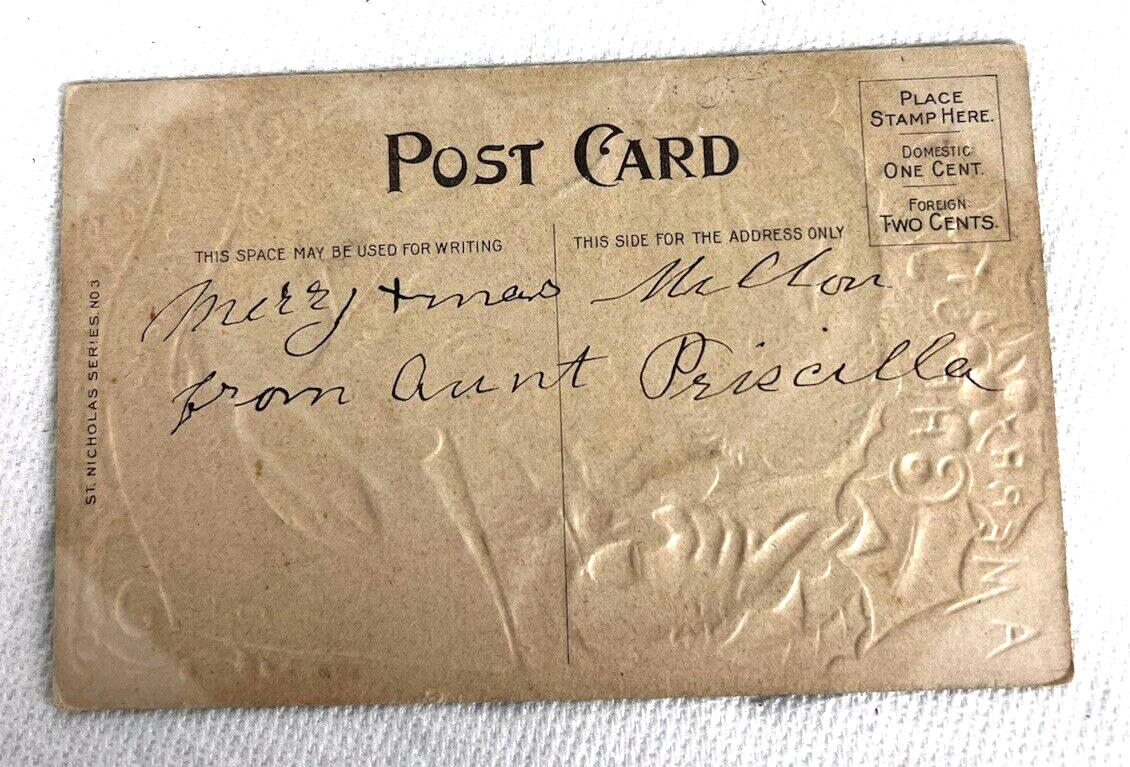 POST CARD
PLACE
STAMP HERE.
DOMESTIC:
ONE CENT.
FOREIGN:
TWO CENTS.
THIS SPACE MAY BE USED FOR WRITING
THIS SIDE FOR THE ADDRESS ONLY
Merry Xmas
from Aunt Priscilla
ST. NICHOLAS SERIES. NO 3
A MERRY